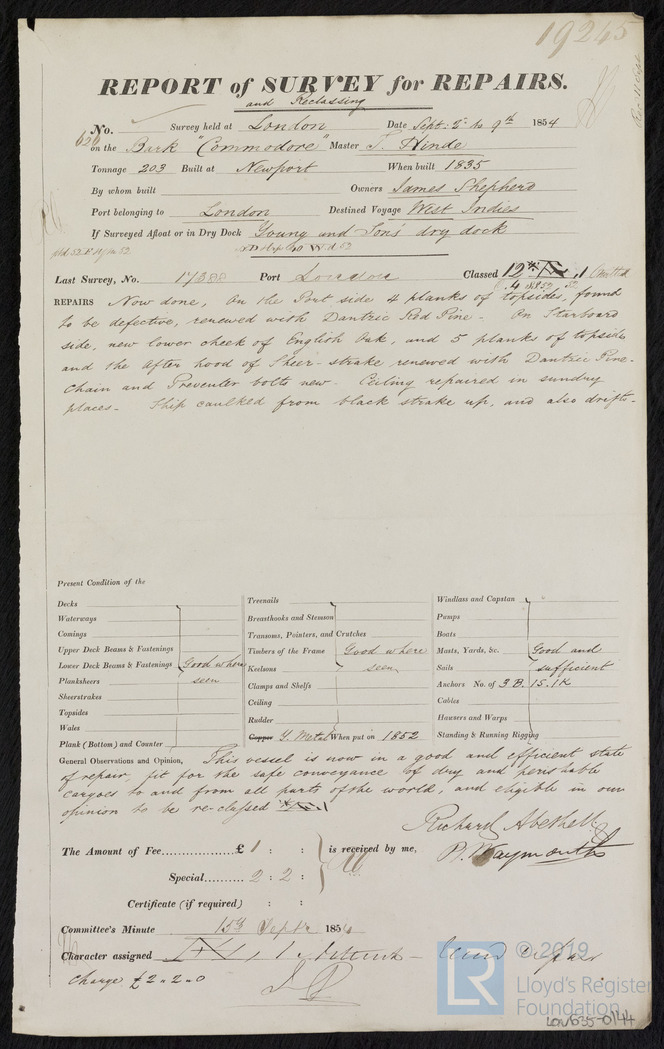 19245
REPORT of SURVEY for REPAIRS.
and Reclassing
No. Survey held at London Date Sept: 2d to 9th 1854
626 on the Bark "Commodore" Master T. Hinde
Tonnage 203 Built at Newport When built 1835
By whom built Owners James Shepherd
Port belonging to London Destined Voyage West Indies
If Surveyed Afloat or in Dry Dock Young and Son's dry dock
Last Survey, No. 17388 Port London Classed
REPAIRS Now done, On the Port side 4 planks of topsides, found
to be defective, renewed with Dantzic Red Pine - On Starboard
side, new lower cheek of English Oak, and 5 planks of topside
and the After hood of Sheer-strake renewed with Dantzic Pine-
Chain and Preventer bolts new - Ceiling repaired in sundry
places - Ship caulked from black strake up, and also drifts-
Present Condition of the
Decks
Waterways
Comings
Upper Deck Beams & Fastenings
Lower Deck Beams & Fastenings Good where
Planksheers seen
Sheerstrakes
Topsides
Wales
Plank (Bottom) and Counter
Treenails
Breasthooks and Stemson
Transoms, Pointers, and Crutches
Timbers of the Frame Good where
Keelsons seen
Clamps and Shelfs
Ceiling
Rudder
Copper Y. Metal When put on 1852
Windlass and Capstan
Pumps
Boats
Masts, Yards, &c. Good and
Sails sufficient
Anchors No. of 3 B. 1S. 1K
Cables
Hausers and Warps
Standing & Running Rigging
General Observations and Opinion, This vessel is now in a good and efficient state
of repair, fit for the safe conveyance of dry and perishable
cargoes to and from all parts of the world, and eligible in our
opinion to be re-classed
Richard Abethell
P. Waymouth
The Amount of Fee £ 1 : : is received by me,
Special 2 : 2 :
Certificate (if required) : :
Committee's Minute 15th Septr 1854
Character assigned
Charge £2-2-0
© 2019
LR
Lloyd's Register
Foundation
LON635-0144